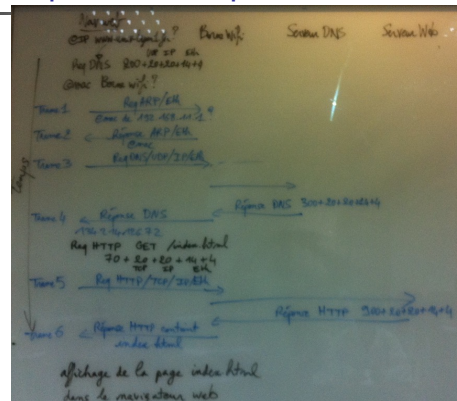 Navigateur Borne Wifi Serveur DNS Serveur Web
@IP ?
UDP IP Eth
Req DNS 200+20+20+14+4
@mac Borne wifi ?
Temps
Trame 1 Req ARP/Eth
@mac de 192.168.11.1 ?
Trame 2 Réponse ARP/Eth
@mac
Trame 3 Req DNS/UDP/IP/Eth
Réponse DNS 300+20+20+14+4
Trame 4 Réponse DNS
Req HTTP GET /index.html
70 + 20 + 20 + 14 + 4
TCP IP Eth
Trame 5 Req HTTP/TCP/IP/Eth
Réponse HTTP 900+20+20+14+4
Trame 6 Réponse HTTP contenant
index.html
affichage de la page index.html
dans le navigateur web